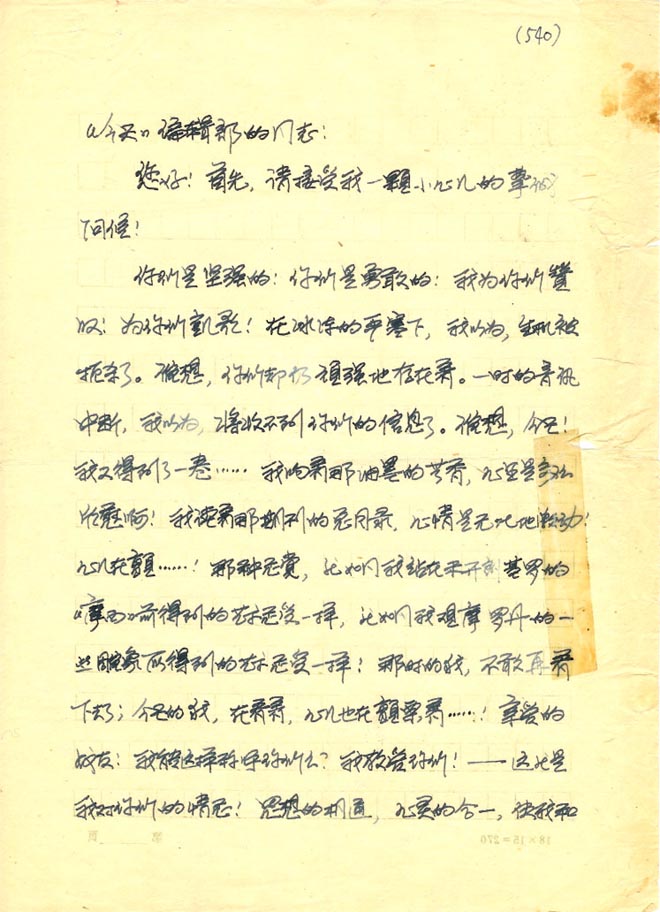 (540)
《今天》编辑部的同志:
您好!首先,请接受我一颗小心儿的挚诚
问候!
你们是坚强的!你们是勇敢的!我为你们赞
叹!为你们凯歌!在冰冻的严寒下,我以为,生机被
扼杀了。谁想,你们却仍顽强地存在着。一时的音讯
中断,我以为,将收不到你们的信息了。谁想,今天!
我又得到了一卷……我呴着那油墨的芳香,心里是多么
欣慰啊!我读着那期刊的总目录,心情是无比地激动!
心儿在颤……!那种感觉,就如同我站在米开朗基罗的
《摩西》前得到的艺术感受一样,就如同我观摩罗丹的一
些雕象所得到的艺术感受一样!那时的我,不敢再看
下去了;今天的我,在看着,心儿也在颤栗着……!亲爱的
战友!我能这样称呼你们么?我敬爱你们!——这就是
我对你们的情感!思想的相通,心灵的合一,使我和
18×15=270
第 页